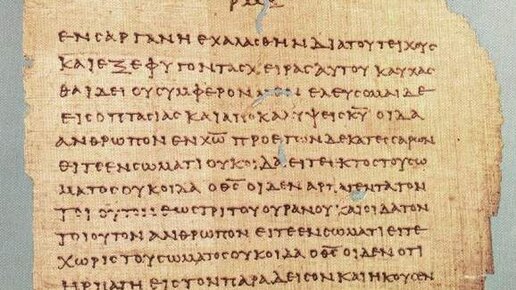 ΕΝ ΣΑΡΓΑΝΗ ΕΧΑΛΑΣΘΗΝ ΔΙΑ ΤΟΥ ΤΕΙΧΟΥΣ
ΚΑΙ ΕΞΕΦΥΓΟΝ ΤΑΣ ΧΕΙΡΑΣ ΑΥΤΟΥ ΚΑΥΧΑΣ
ΘΑΙ ΔΕΙ ΟΥ ΣΥΜΦΕΡΟΝ ΕΛΕΥΣΟΜΑΙ ΔΕ
ΕΙΣ ΟΠΤΑΣΙΑΣ ΚΑΙ ΑΠΟΚΑΛΥΨΕΙΣ Κ̅Υ̅ ΟΙΔΑ
ΑΝΘΡΩΠΟΝ ΕΝ Χ̅Ω̅ ΠΡΟ ΕΤΩΝ ΔΕΚΑΤΕΣΣΑΡΩΝ
ΕΙΤΕ ΕΝ ΣΩΜΑΤΙ ΟΥΚ ΟΙΔΑ ΕΙΤΕ ΕΚΤΟΣ ΤΟΥ ΣΩ
ΜΑΤΟΣ ΟΥΚ ΟΙΔΑ Ο Θ̅Σ̅ ΟΙΔΕΝ ΑΡΠΑΓΕΝΤΑ ΤΟΝ
ΤΟΙΟΥΤΟΝ ΕΩΣ ΤΡΙΤΟΥ ΟΥΡΑΝΟΥ ΚΑΙ ΟΙΔΑ ΤΟΝ
ΤΟΙΟΥΤΟΝ ΑΝΘΡΩΠΟΝ ΕΙΤΕ ΕΝ ΣΩΜΑΤΙ ΕΙΤΕ
ΧΩΡΙΣ ΤΟΥ ΣΩΜΑΤΟΣ ΟΥΚ ΟΙΔΑ Ο Θ̅Σ̅ ΟΙΔΕΝ ΟΤΙ
ΗΡΠΑΓΗ ΕΙΣ ΤΟΝ ΠΑΡΑΔΕΙΣΟΝ ΚΑΙ ΗΚΟΥΣΕΝ